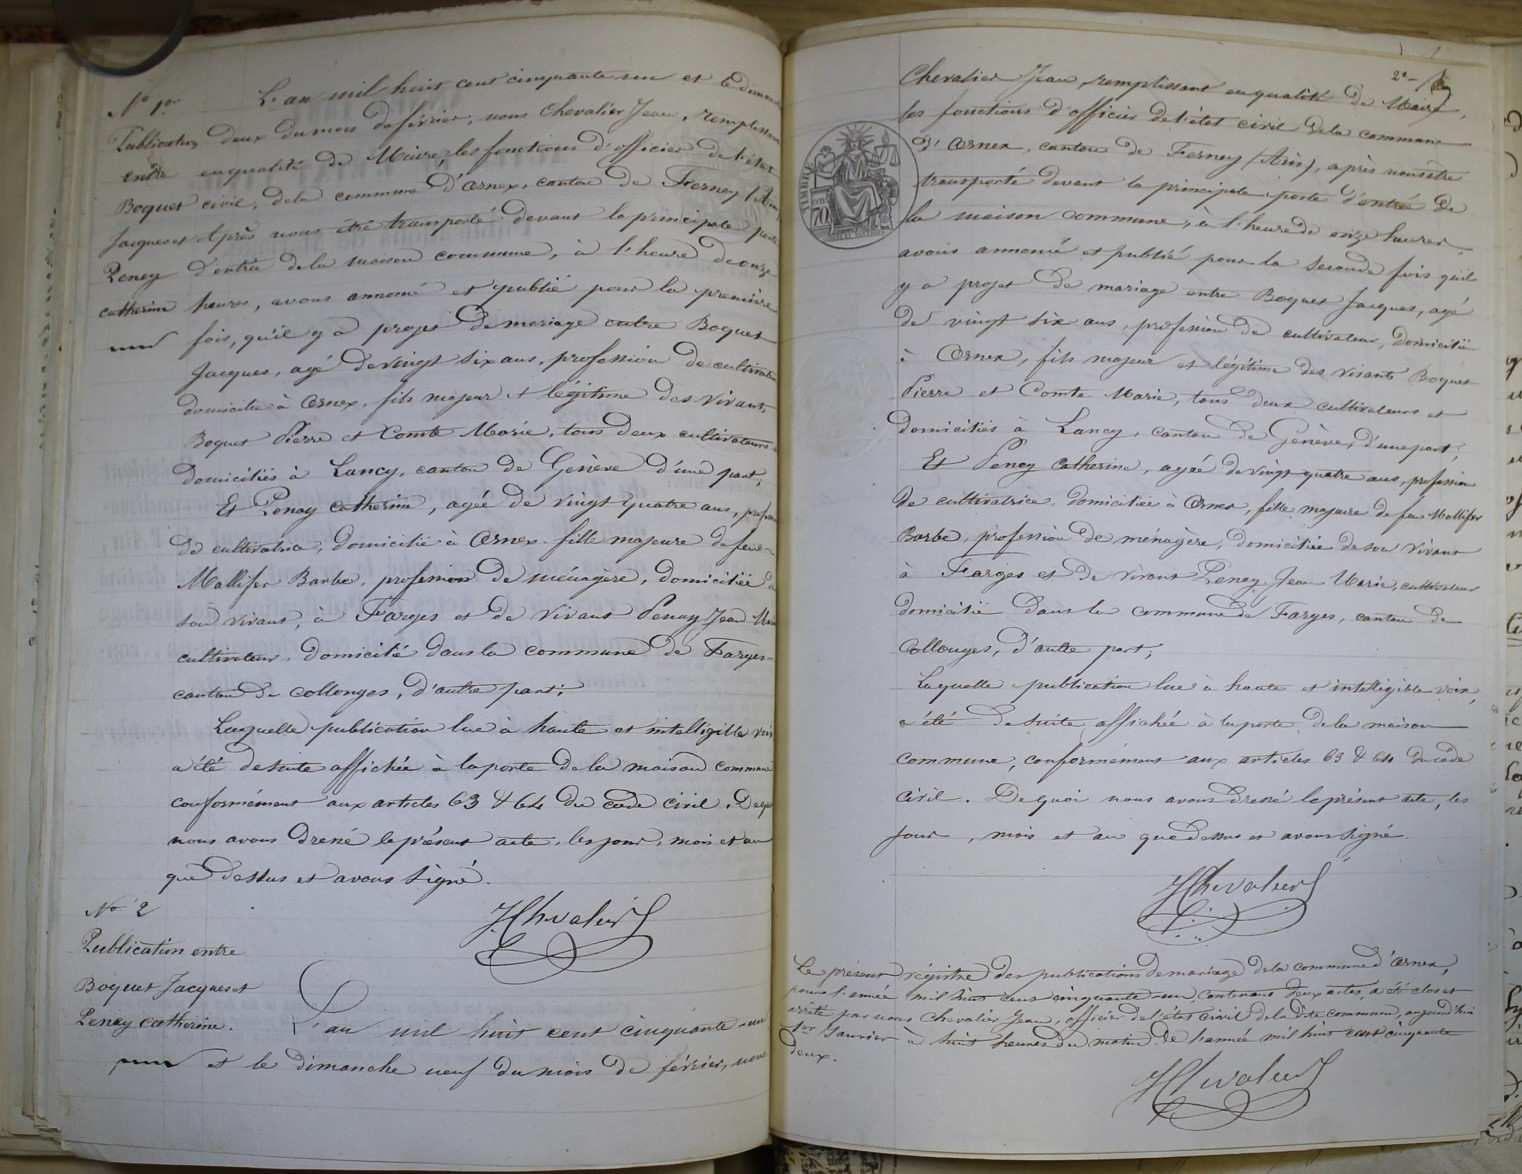 N° 1er
Publication
entre
Boquet
Jacques et
Peney
catherine
L'an mil huit cent cinquante un et le diman
deux du mois de février, nous Chevalier Jean, remplissant
en qualité de Maire, les fonctions d'officier de l'état
civil, de la commune d'Ornex, canton de Ferney (Ain)
Après nous être transporté devant la principale porte
d'entrée de la maison commune, à l'heure de onze
heures, avons annoncé et publié pour la première
fois, qu'il y a projet de mariage entre Boquet
Jacques, agé de vingt six ans, profession de cultivateur
domicilié à Ornex, fils majeur et légitime des vivants
Boquet Pierre et Comte Marie, tous deux cultivateurs
domiciliés à Lancy, canton de Genève d'une part,
Et Peney Catherine, agée de vingt quatre ans, profession
de cultivatrice, domiciliée à Ornex, fille majeure de feue
Mallifer Barbe, profession de ménagère, domiciliée de
son vivant, à Farges et de vivant Peney Jean Marie
cultivateur, domicilié dans la commune de Farges
canton de Collonges, d'autre part;
Laquelle publication lue à haute et intelligible voix
a été de suite affichée à la porte de la maison commune
conformément aux articles 63 & 64 du code civil. De quoi
nous avons dressé le présent acte, les jour, mois et an
que dessus et avons signé.
J. Chevalier
N° 2
Publication entre
Boquet Jacques et
Peney Catherine.
L'an mil huit cent cinquante un
et le dimanche neuf du mois de février, nous
2e
Chevalier Jean, remplissant en qualité de Maire,
les fonctions d'officier de l'état civil de la commune
d'Ornex, canton de Ferney (Ain), après nous être
transporté devant la principale porte d'entrée de
la maison commune, à l'heure de onze heures,
avons annoncé et publié pour la seconde fois qu'il
y a projet de mariage entre Boquet Jacques, agé
de vingt six ans, profession de cultivateur, domicilié
à Ornex, fils majeur et légitime des vivants Boquet
Pierre et Comte Marie, tous deux cultivateurs et
domiciliés à Lancy, canton de Genève, d'une part;
Et Peney Catherine, agée de vingt quatre ans, profession
de cultivatrice, domiciliée à Ornex, fille majeure de feu Mallifer
Barbe, profession de ménagère, domiciliée de son vivant
à Farges et de vivant Peney Jean Marie, cultivateur
domicilié dans la commune de Farges, canton de
Collonges, d'autre part;
Laquelle publication lue à haute et intelligible voix,
a été de suite affichée à la porte de la maison
commune, conformément aux articles 63 & 64 du code
civil. De quoi nous avons dressé le présent acte, les
jour, mois et an que dessus et avons signé.
J Chevalier
Le présent régistre des publications de mariage de la commune d'Ornex,
pour l'année mil huit cent cinquante un, contenant deux actes, a été clos et
arrêté par nous Chevalier Jean, officier de l'état civil de la dite commune, aujourd'hui
1er Janvier à huit heures du matin de l'année mil huit cent cinquante
deux.
J Chevalier
TIMBRE
70